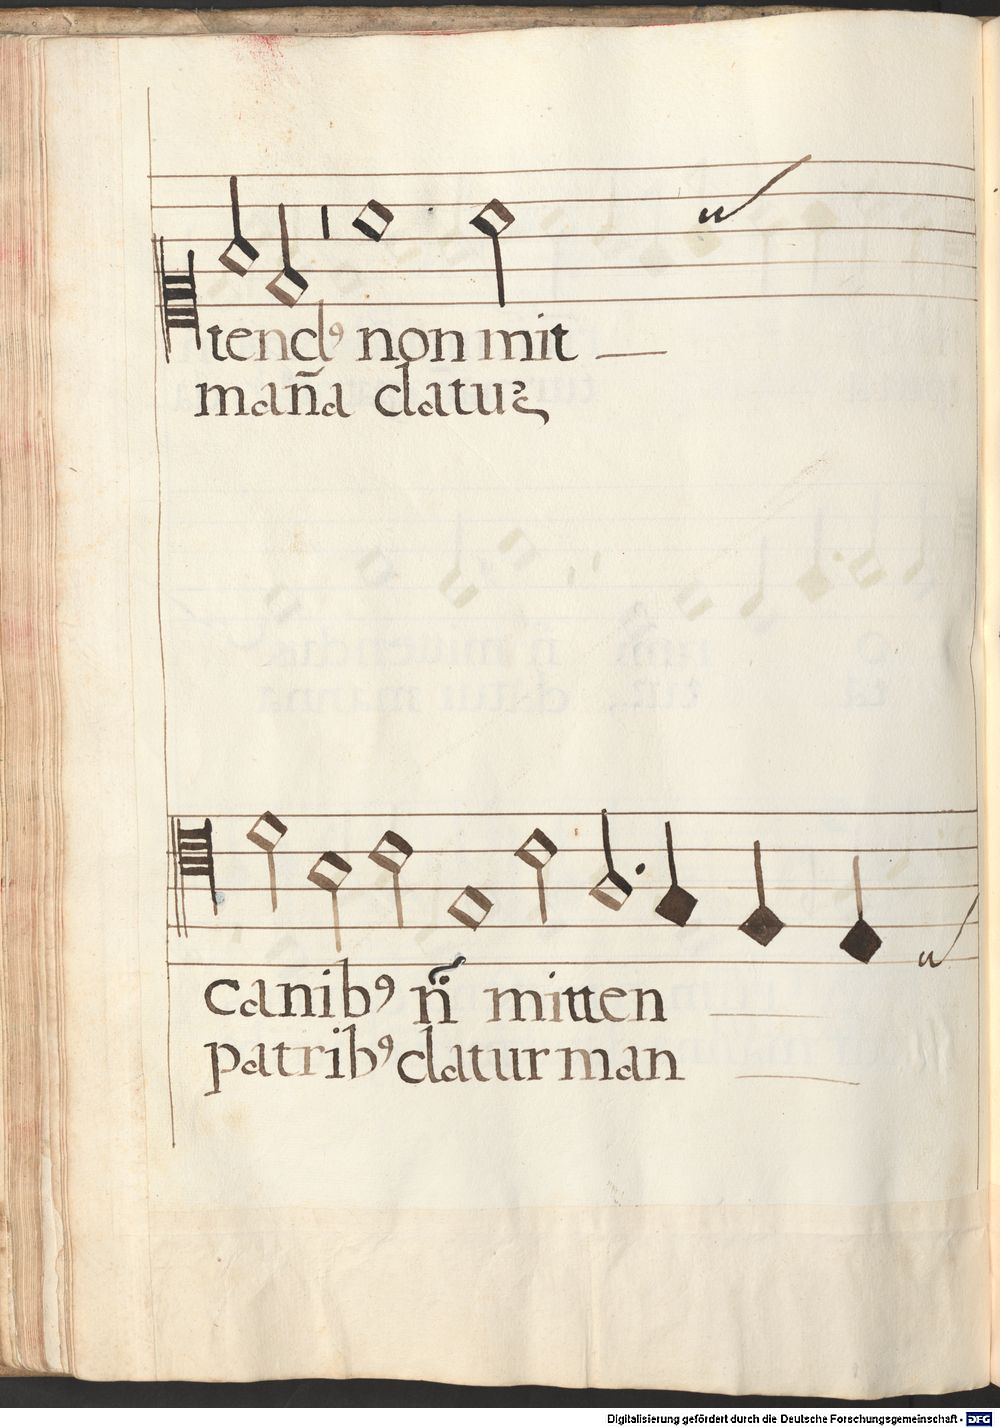 tendꝰ non mit
maña datuꝝ
canibꝰ ñ mitten
patribꝰ datur man
Digitalisierung gefördert durch die Deutsche Forschungsgemeinschaft - DFG